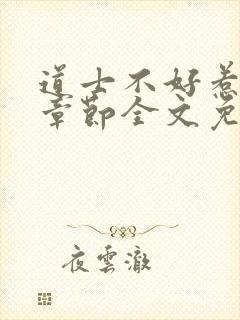 道士不好惹
章節全文免
夜雲澈